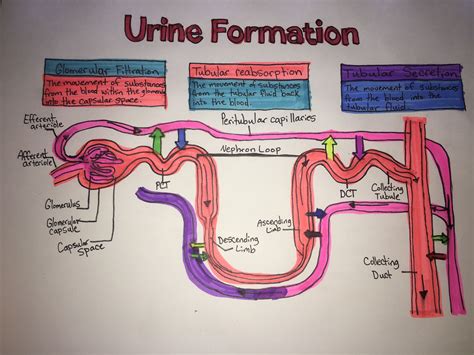 Urine Formation
Glomerular Filtration
The movement of substances
from the blood within the glomerulus
into the capsular space.
Tubular reabsorption
The movement of substances
from the tubular fluid back
into the blood.
Tubular Secretion
The movement of substances
from the blood into the
tubular fluid.
Efferent
arteriole
Peritubular capillaries
Afferent
arteriole
Nephron Loop
PCT
DCT
Collecting
Tubule
Glomerulus
Glomerular
capsule
Capsular
Space
Descending
Limb
Ascending
Limb
Collecting
Dust